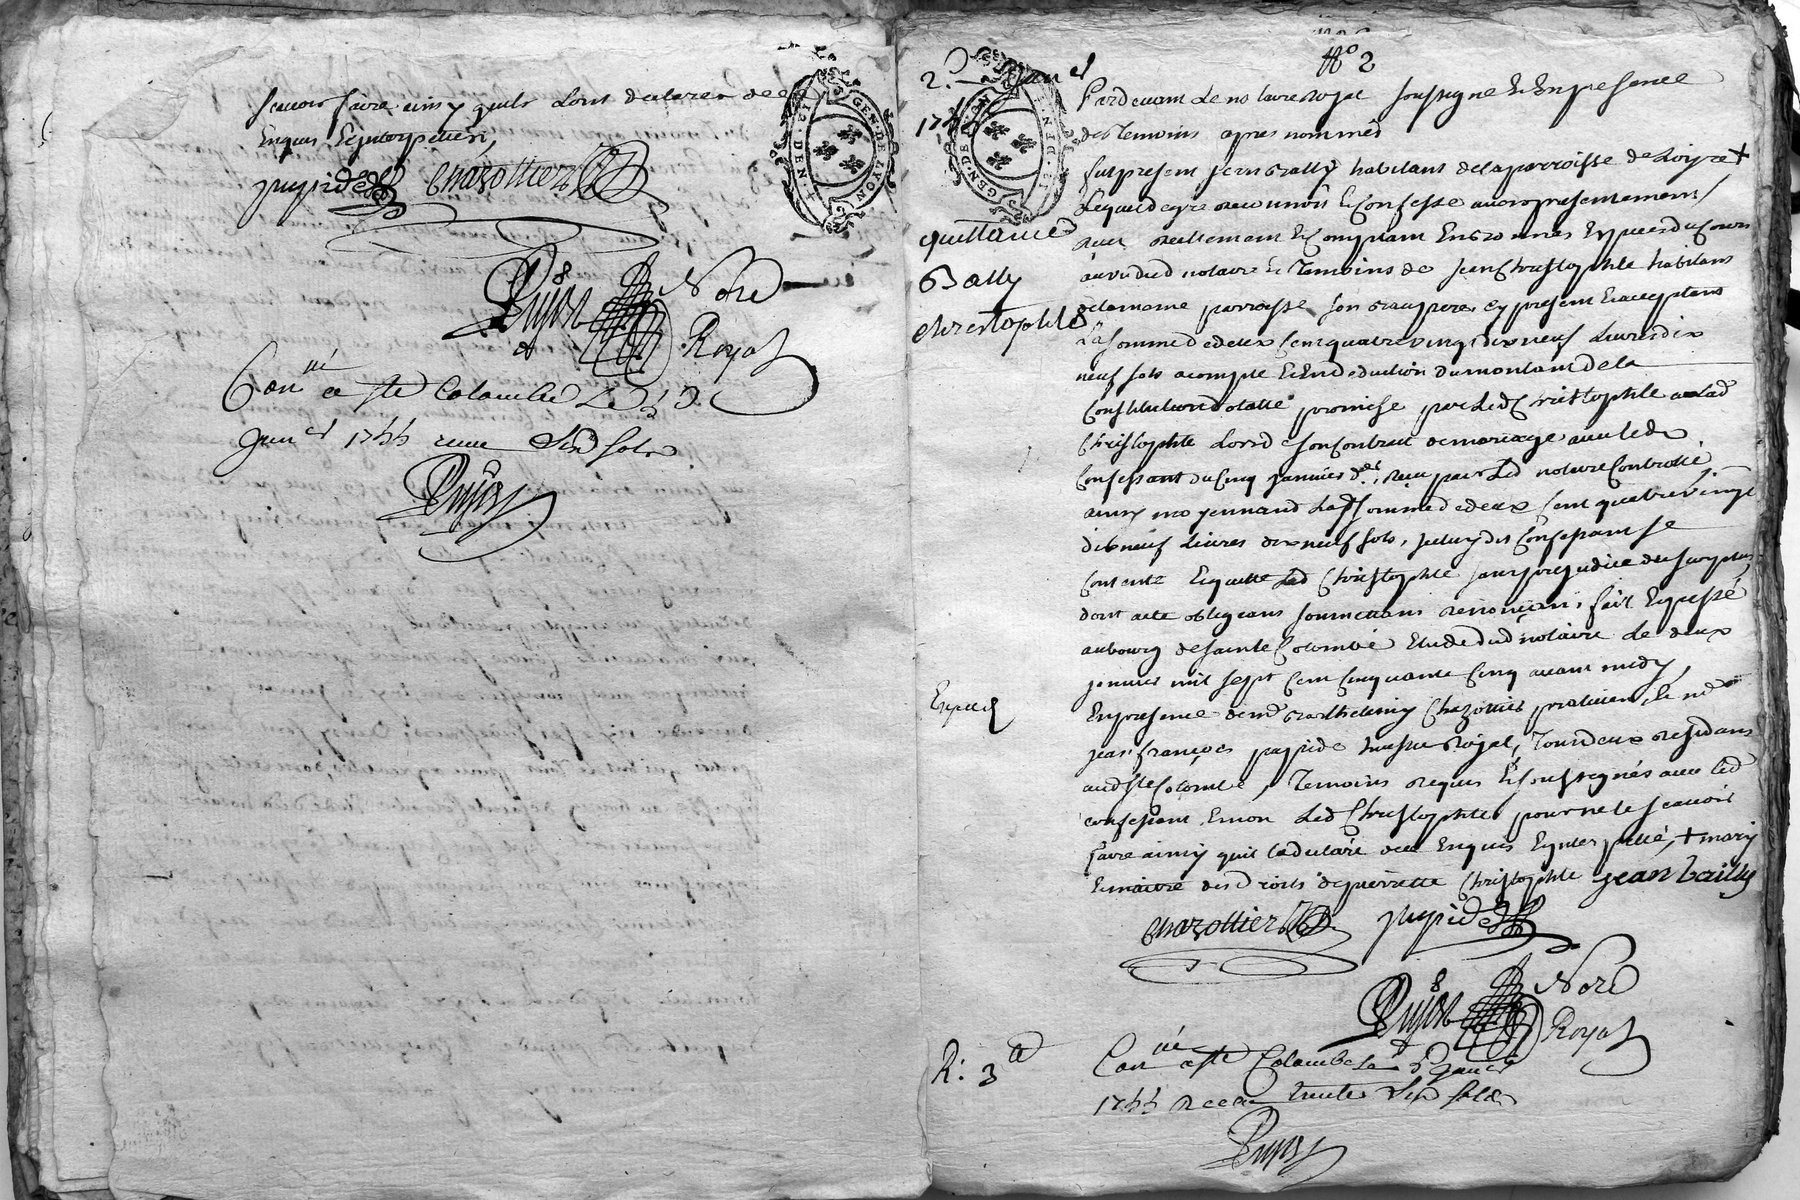 scavoir faire ainsy quils lont declaré de ce
Enquis Et interpellés,
pupidé chazottier
Pujos Nore
Royal
Con.né a Ste Colombe Le 3
Janer 1755 reçu Six Sols
Pujos
GEN. DE LYON
N° 2
2.e Janer
1755
Pardevant Le notaire royal soussigné Et En presence
des Temoins apres nommés
fut present jean Bally habitant de la parroisse de Loire +
Lequel de gré a reconnû Et Confesse avoir presentement
reçu reellement Et Comptant En bonnes Especes du Cours
a vue dud notaire Et Temoins de Jean Christophle habitant
de la meme parroisse son beaupere cy present Et acceptant
La somme de deux Cent quatre vingt dix neuf Livres dix
neuf sols acompte Et En deduction du montant de la
Constitution dotalle promise par Led Christophle a Lad
Christophle Lors de son Contrat de mariage avec led
Confessant du Cinq janvier d.er, reçu par Led notaire Controllé
ainsy moyennant Lad somme de deux Cent quatre vingt
dix neuf Livres dix neuf sols, Celuy dit Confessant se
Contente Et quitte Led Christophle sans prejudice du surplus,
dont acte obligeant soumettant renonçant, fait Et passé
au bourg de Sainte Colombe Etude dud notaire Le deux
janvier mil sept Cent Cinquante Cinq avant midy,
En presence de m.e Barthelemy Chazottier praticien, Et m.e
jean françois pupidé huissier Royal, Tous deux residans
aud Ste Colombe, Temoins requis Et soussignés avec led
confessant, Et non Led Christophle pour ne le scavoir
faire ainsy quil la declaré de ce Enquis Et interpellé, + mary
Et maitre des Droits de pierrette Christophle jean bailly
chazottier pupidé
Pujos Nore
Royal
quittance
Bally
christophle
Expedié
R: 3
Con.né a Ste Colombe Le 3 Janer
1755 Reçu trente Six Sols
Pujos